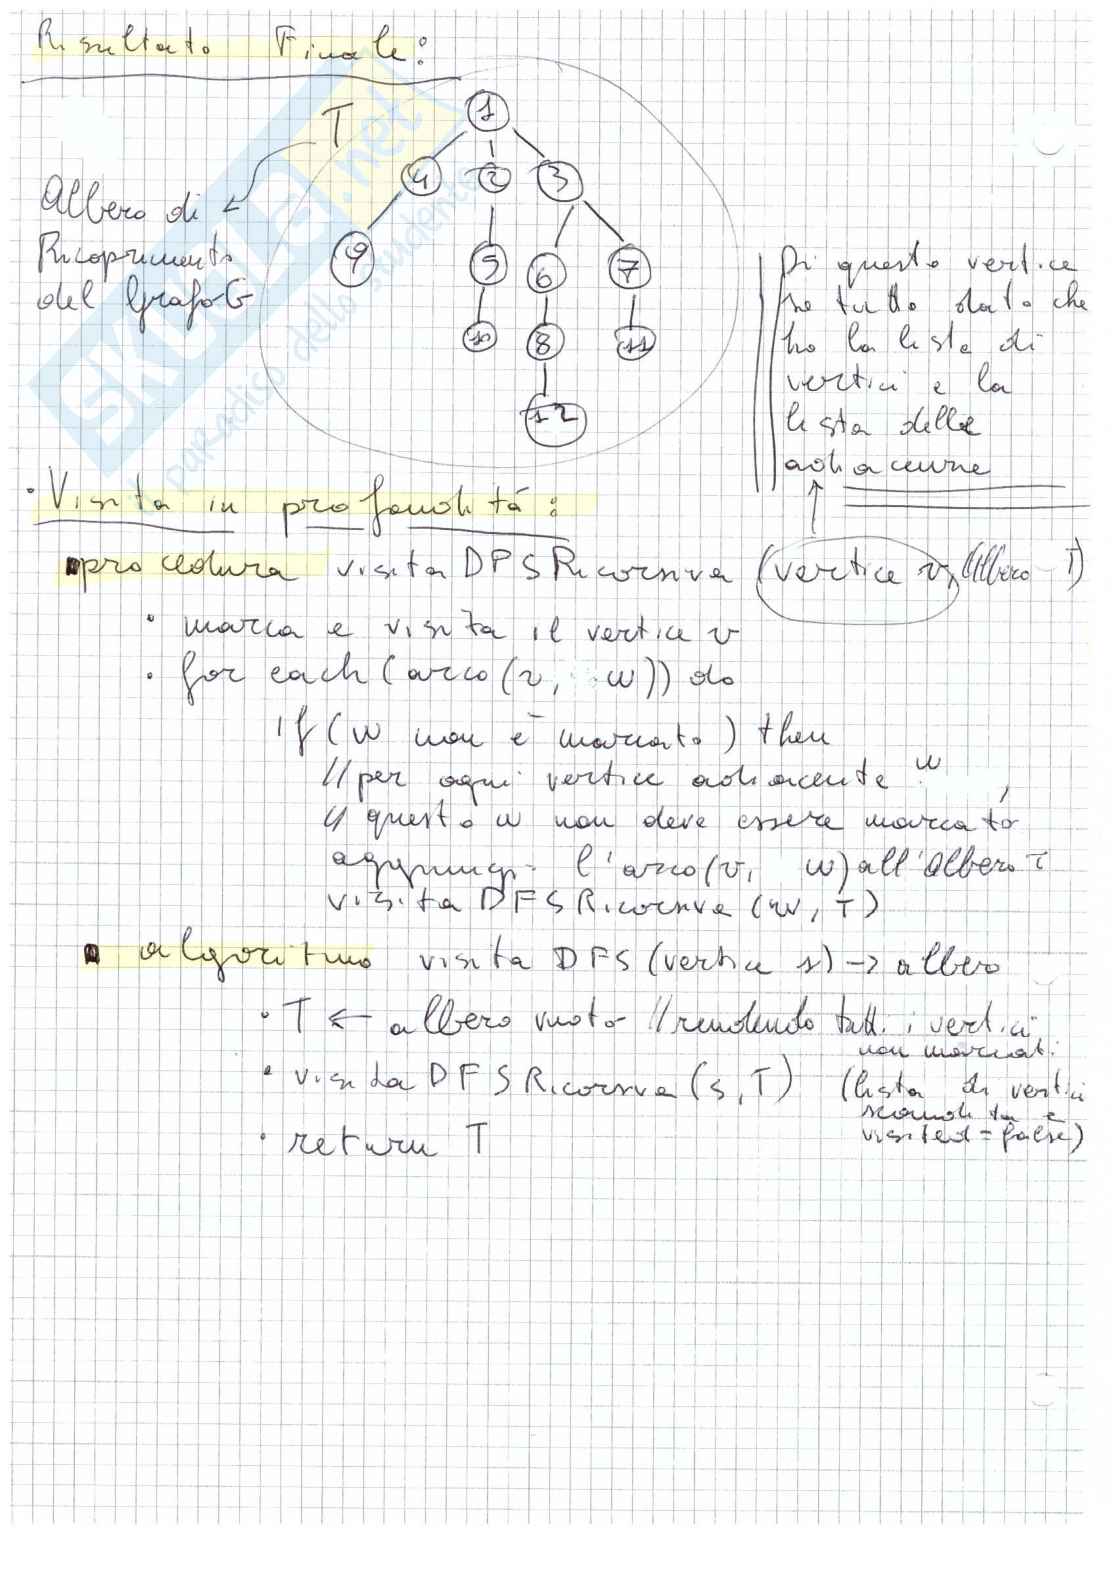 Risultato Finale:
T
1
4 2 3
Albero di
Ricoprimento
del Grafo G
9 5 6 7
10 8 11
12
Di questo vertice
so tutto dato che
ho la lista di
vertici e la
lista delle
adiacenze
SKUOLA.net
paradiso dello studente
• Visita in profondità:
procedura visita DFS Ricorsiva (vertice v, Albero T)
• marca e visita il vertice v
• for each (arco (v, w)) do
if (w non è marcato) then
// per ogni vertice adiacente w,
// questo w non deve essere marcato
aggiungi l'arco (v, w) all'albero T
visita DFS Ricorsiva (w, T)
algoritmo visita DFS (vertice s) -> albero
• T ← albero vuoto // rendendo tutti i vertici
non marcati
• visita DFS Ricorsiva (s, T) (lista di vertici
scandita e
visited = false)
• return T